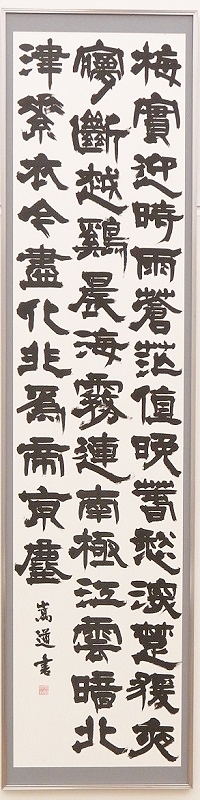 梅實迎時雨蒼茫值晚春愁深楚猨夜
夢斷越鷄晨海霧連南極江雲暗北
津素衣今盡化非爲帝京塵
嵩道書